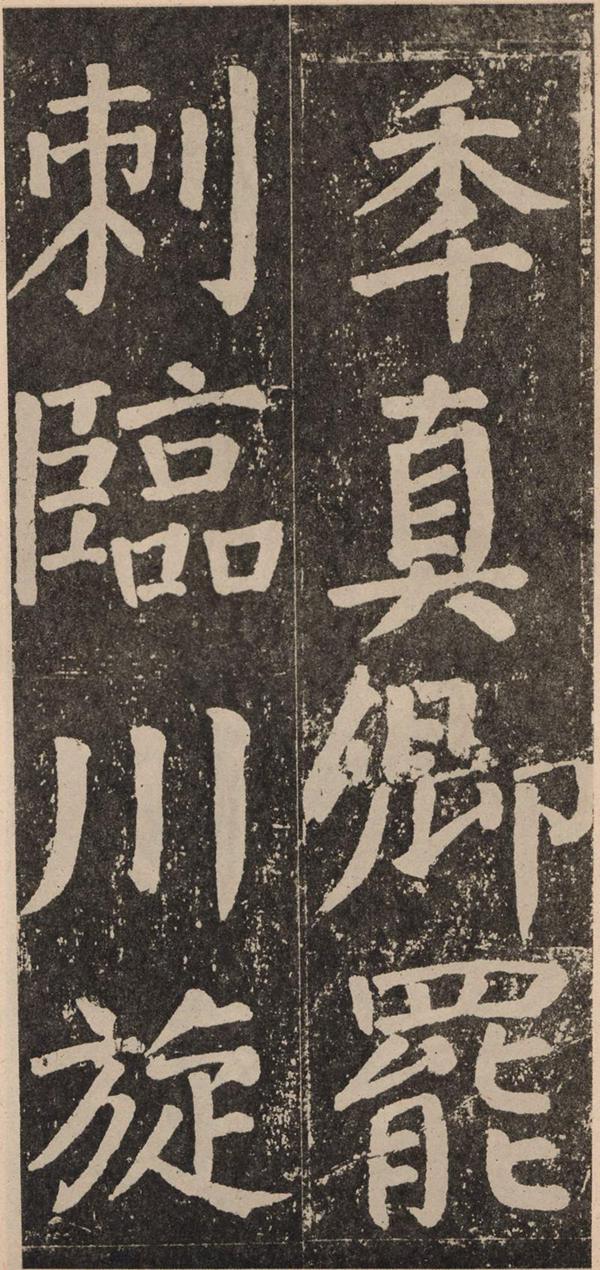 季真卿罷
刺臨川旋